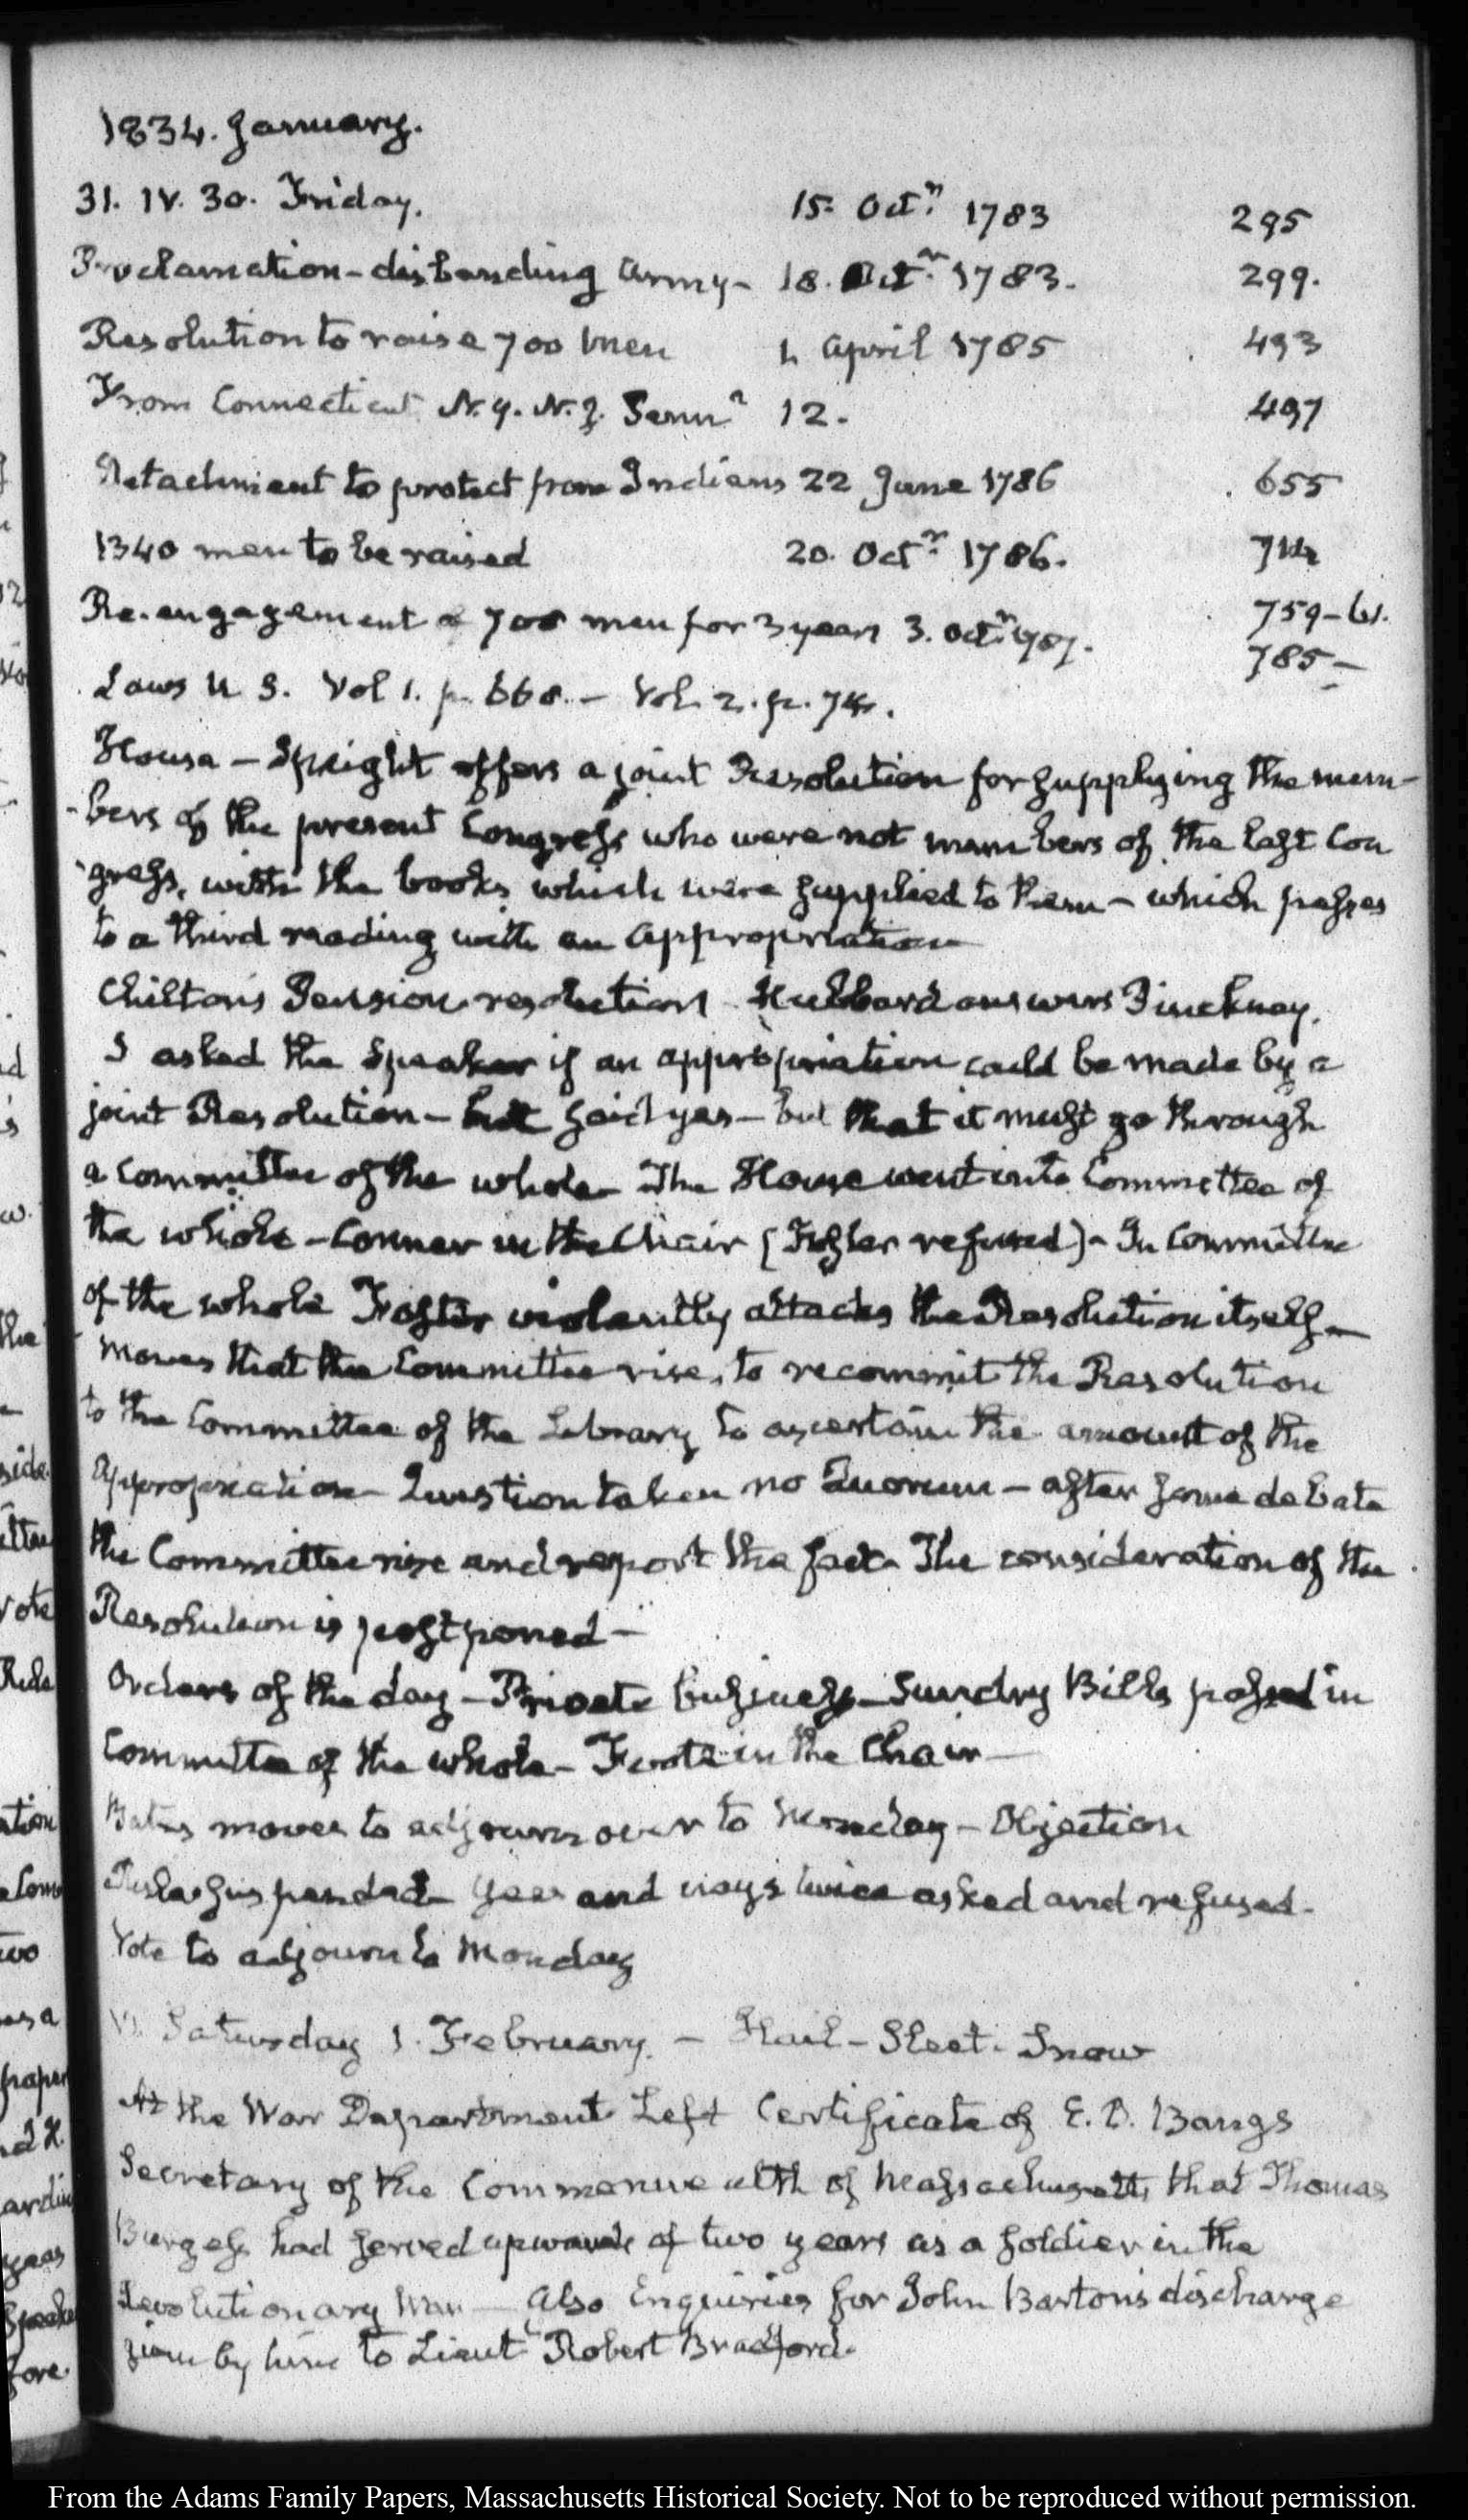 1834. January.
31. IV. 30. Friday. 15. Octr. 1783 295
Proclamation - disbanding Army - 18. Octr. 1783. 299.
Resolution to raise 700 men 1. April 1785 493
From Connecticut N.Y. N.J. Penna 12. 497
Detachment to protect from Indians 22 June 1786 655
1340 men to be raised 20. Octr. 1786. 714
Re-engagement of 700 men for 3 years 3. Octr. 1787. 759-61.
785-
Laws U S. Vol 1. p. 668. - Vol. 2. p. 74.
House - Speight offers a joint Resolution for supplying the mem-
-bers of the present Congress who were not members of the last Con
-gress, with the books which were supplied to them - which passes
to a third reading with an appropriation
Chilton's Pension resolution Hubbard answers Pinckney.
I asked the Speaker if an appropriation could be made by a
joint Resolution - he said yes - but that it must go through
a Committee of the whole - The House went into Committee of
the whole - Conner in the Chair (Foster refused) - In Committee
of the whole Foster violently attacks the Resolution itself -
moves that the Committee rise, to recommit the Resolution
to the Committee of the Library to ascertain the amount of the
appropriation - Question taken no Quorum - after some debate
the Committee rise and report the fact - The consideration of the
Resolution is postponed -
Orders of the day - Private business - Sundry Bills passed in
Committee of the whole - Foote in the Chair -
Bates moves to adjourn over to Monday - Objection
Rule suspended - Yeas and nays twice asked and refused -
Vote to adjourn to Monday
VI. Saturday 1. February. - Hail - Sleet - Snow
At the War Department Left Certificate of E. D. Bangs
Secretary of the Commonwealth of Massachusetts, that Thomas
Burgess had served upwards of two years as a soldier in the
Revolutionary War - also Enquiries for John Barton's discharge
given by him to Lieutt Robert Bradford.
From the Adams Family Papers, Massachusetts Historical Society. Not to be reproduced without permission.